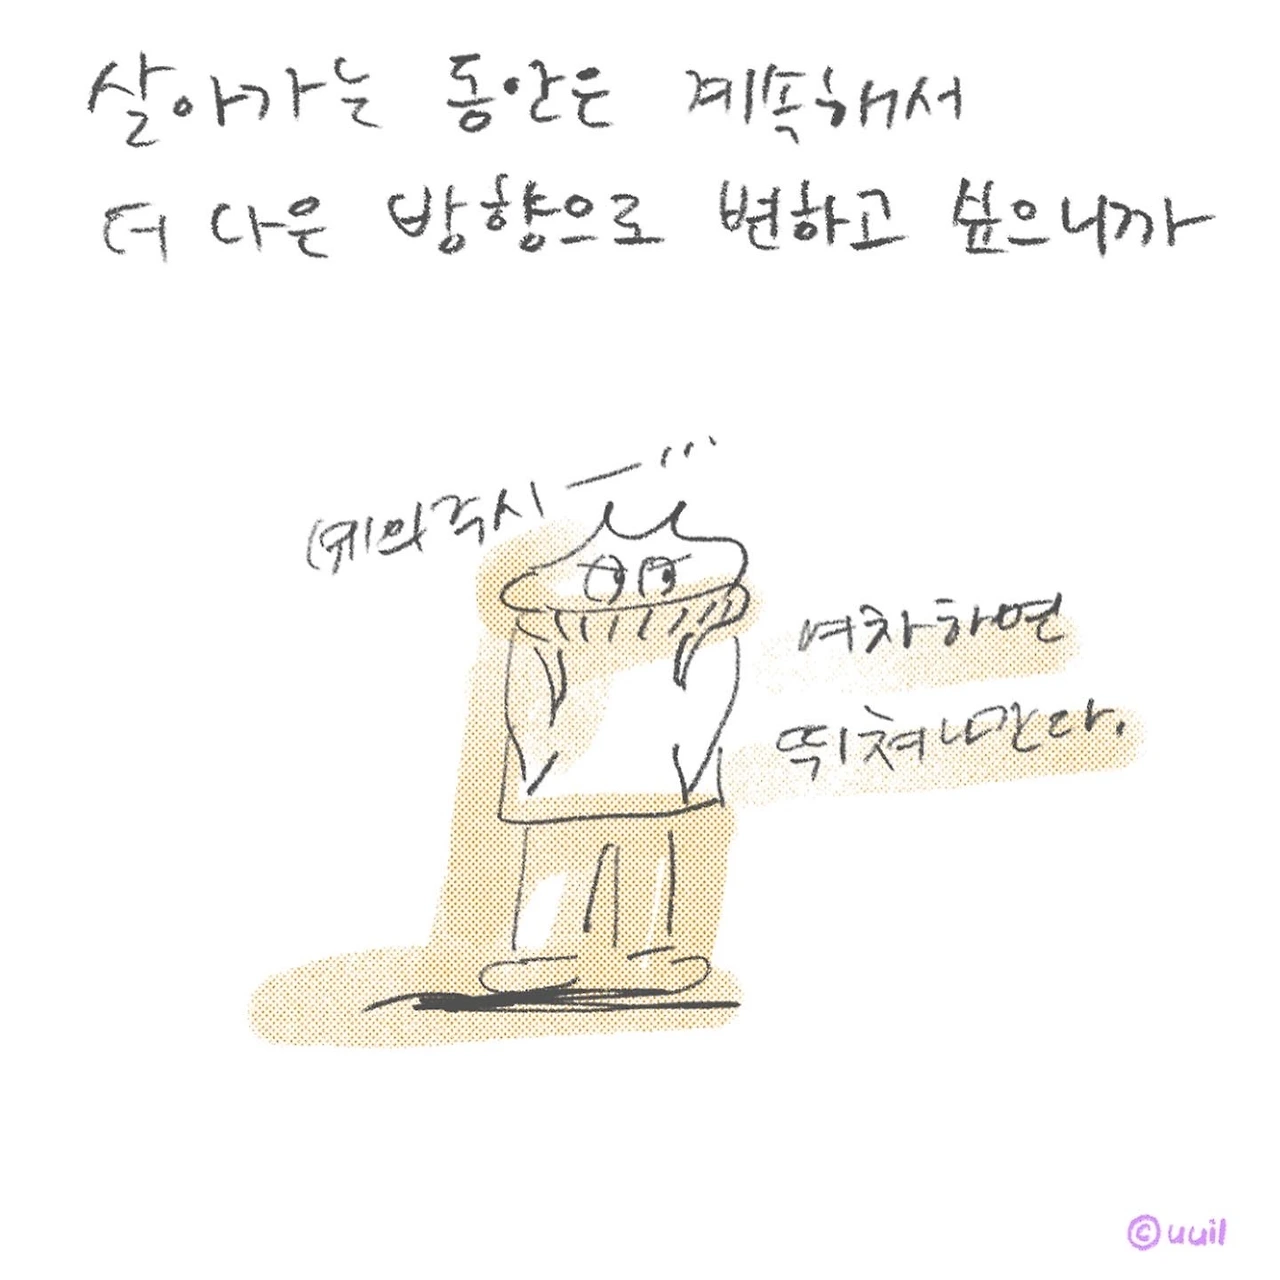 살아가는 동안은 계속해서
더 다은 방향으로 변하고 싶으니까
예의주시
여차하면
뛰쳐나간다.
©uuil